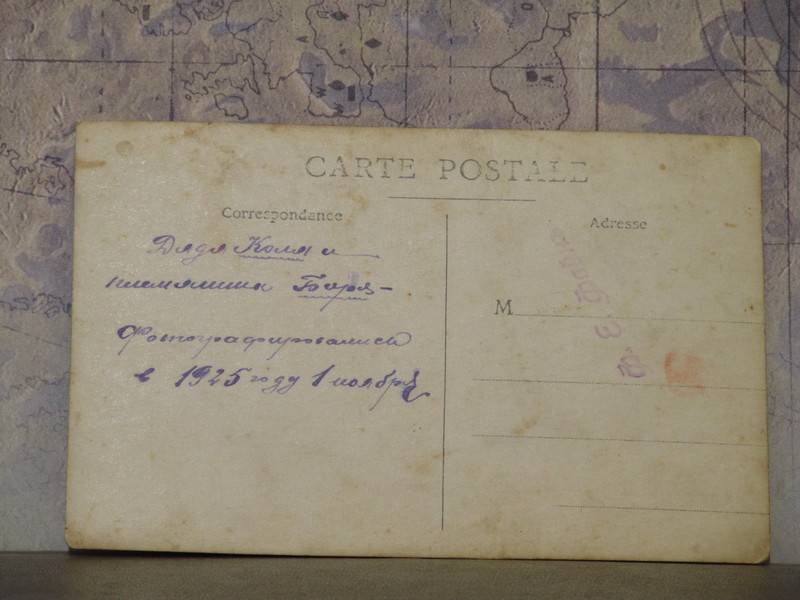 CARTE POSTALE
Correspondance
Adresse
Дядя Коля и
племянник Боря —
Фотографировались
в 1925 году 1 ноября
M